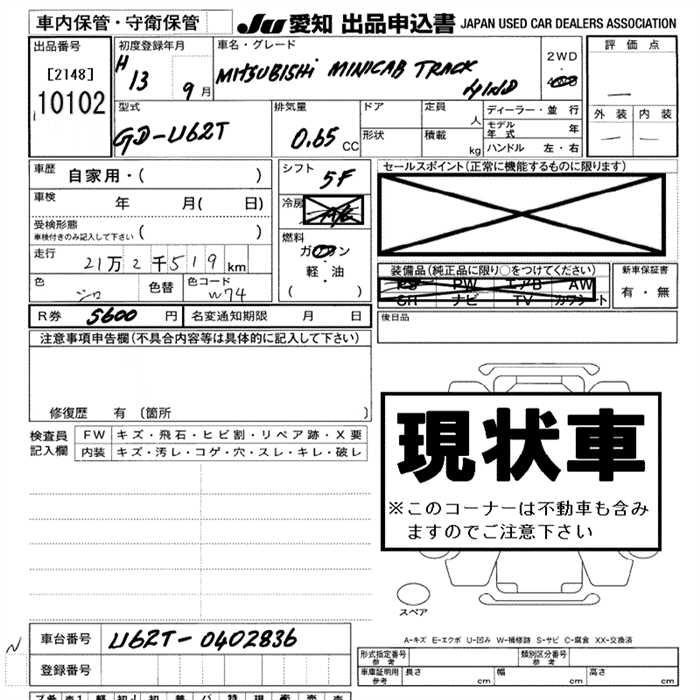 車内保管・守衛保管
JU 愛知 出品申込書 JAPAN USED CAR DEALERS ASSOCIATION
出品番号
[2148]
10102
初度登録年月
H 13 9月
車名・グレード
MITSUBISHI MINICAB TRACK 4WD
2WD
・
評価点
—
外装 内装
— —
型式
GD-U62T
排気量
0.65 CC
ドア
定員
人
形状
積載
kg
ディーラー・並行
モデル年式 年
ハンドル 左・右
車歴 自家用・( )
車検 年 月( 日)
受検形態
車検付きのみ記入して下さい ( )
走行
21万2千519km
色
シロ
色替
色コード
W74
シフト
5F
冷房
燃料
ガソリン
軽・油
( )
セールスポイント(正常に機能するものに限ります)
装備品(純正品に限り○をつけてください)
PS PW エアB AW
SR ナビ TV カワシート
新車保証書
有・無
R券 5600 円
名変通知期限 月 日
後日品
注意事項申告欄(不具合内容等は具体的に記入して下さい)
修復歴 有 〔箇所 〕
検査員
記入欄
FW キズ・飛石・ヒビ割・リペア跡・X要
内装 キズ・汚レ・コゲ・穴・スレ・キレ・破レ
現状車
※このコーナーは不動車も含み
ますのでご注意下さい
スペア
A-キズ E-エクボ U-凹み W-補修跡 S-サビ C-腐食 XX-交換済
N
車台番号 U62T-0402836
登録番号
形式指定番号
参考
類別区分番号
参考
車庫証明用
参考
長さ cm 幅 cm 高さ cm